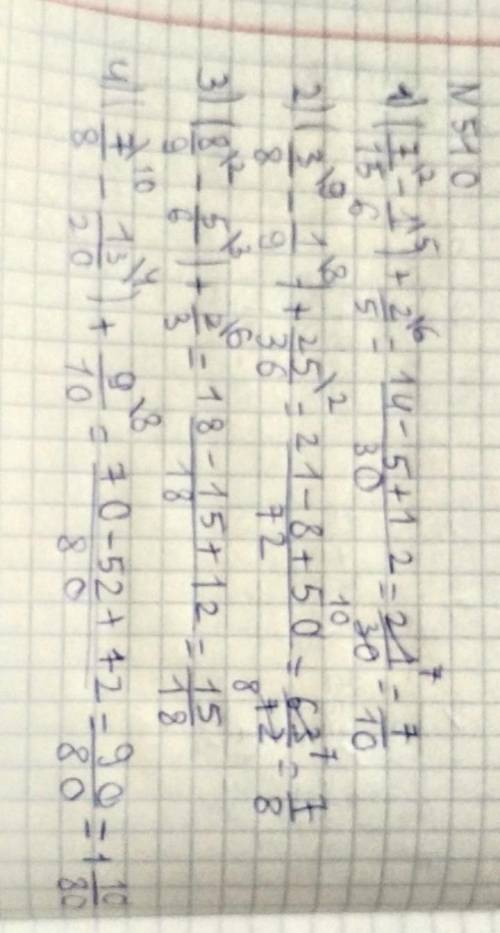 N 510
1) (7/15 \2 - 1/6 \5) + 2/5 \6 = (14-5+12)/30 = 21/30 = 7/10
2) (3/8 \9 - 1/9 \8) + 25/36 \2 = (21-8+50)/72 = 63/72 = 7/8
3) (8/9 \2 - 5/6 \3) + 2/3 \6 = (18-15+12)/18 = 15/18
4) (7/8 \10 - 13/20 \4) + 9/10 \8 = (70-52+72)/80 = 90/80 = 1 10/80